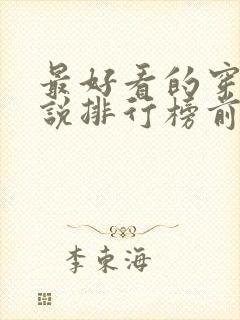 最好看的穿
说排行榜前
李东海